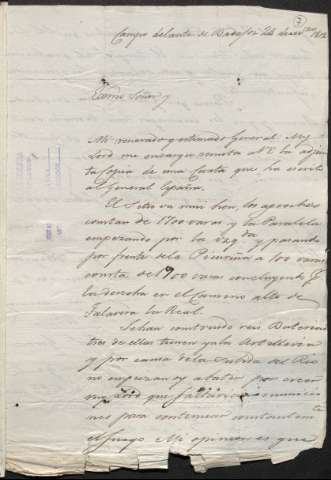 7
Campo delante de Badajoz 24 de 1812
Exmo Señor
Mi venerado y estimado General My
Lord me encarga remita a V.E. la adjun
ta Copia de una Carta que ha escrito
al General España.
El Sitio va mui bien, los aproches
constan de 1700 varas y la Paralela
empezando por la y pasando
por frente de la Picurina a 100 varas
consta de 1900 varas concluyendo
la derecha en el Camino alto de
Talavera la Real.
Se han construido seis Baterias
tres de ellas tienen ya la Artilleria
y por causa de la Subida del Rio
no empiezan ya a batir por creer
my Lord que faltarian municio
nes para continuar constante
el fuego. Mi opinion es que